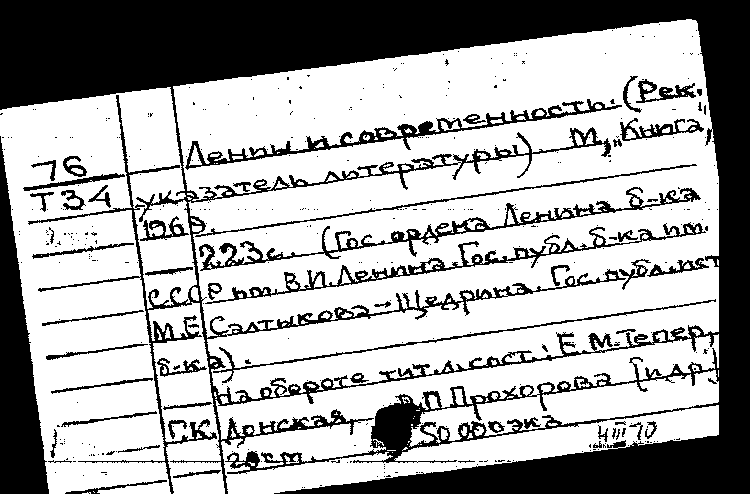 Ленин и современность. (Рек.
76
Т34
указатель литературы). М., "Книга",
1969.
223с. (Гос. ордена Ленина б-ка
СССР им. В.И.Ленина. Гос. публ. б-ка им.
М.Е.Салтыкова-Щедрина. Гос. публ. ист.
б-ка).
На обороте тит.л. сост.: Е.М.Тепер,
Г.К. Донская, В.П Прохорова [и др.]
50 000экз
4 III 70